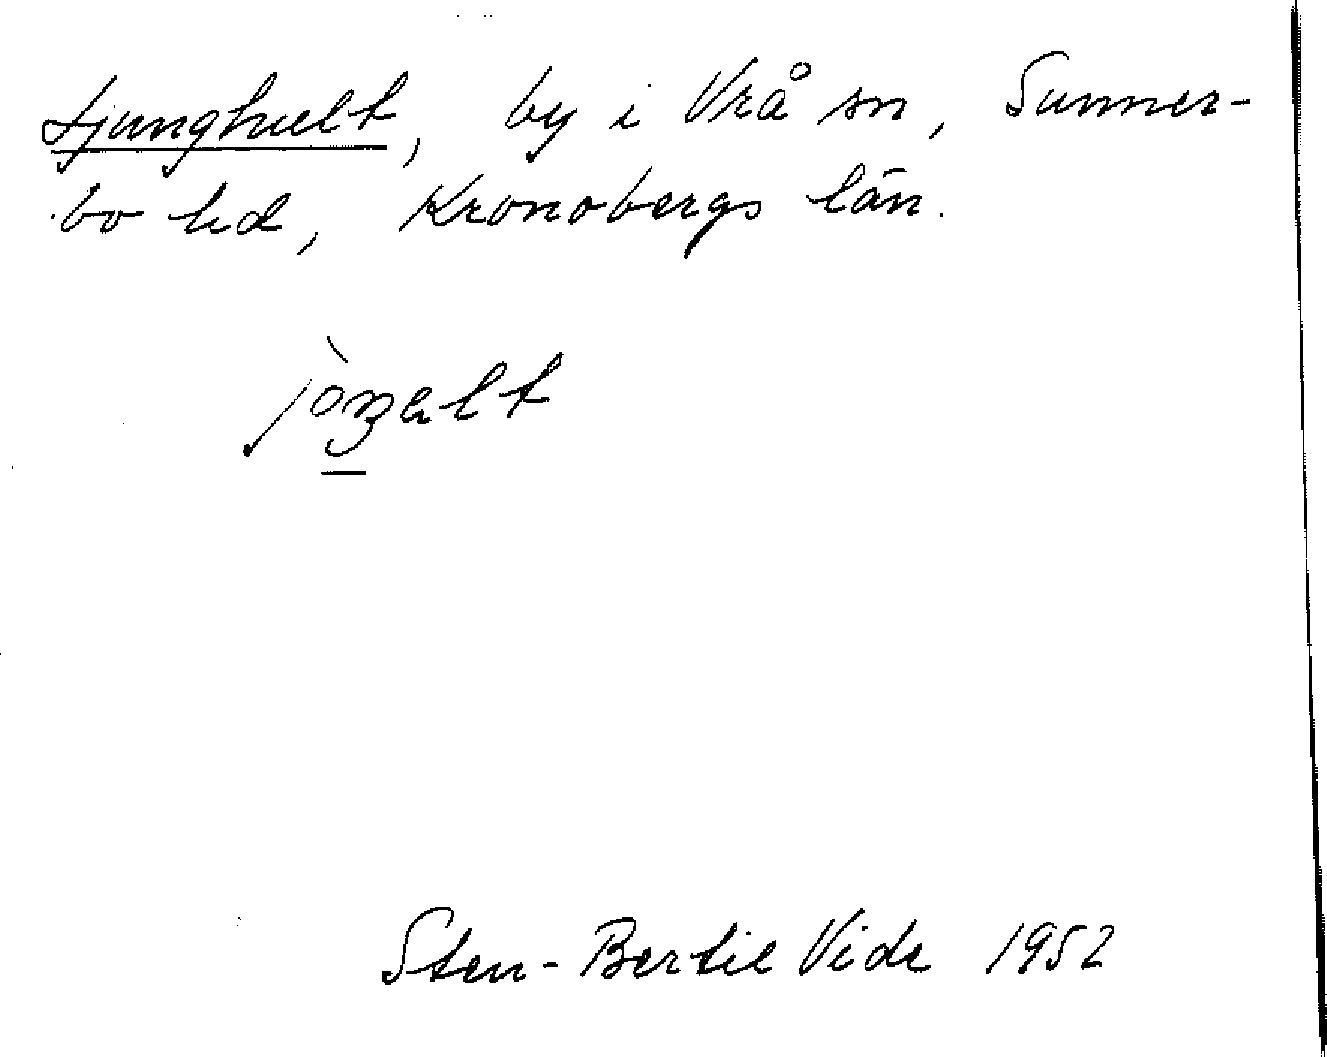 Ljunghult, by i Vrå sn, Sunner-
bo hd, Kronobergs län.
Sten-Bertil Vide 1952